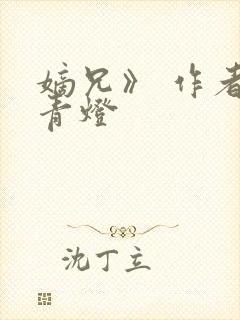 嫡兄》 作者
青燈
沈丁立